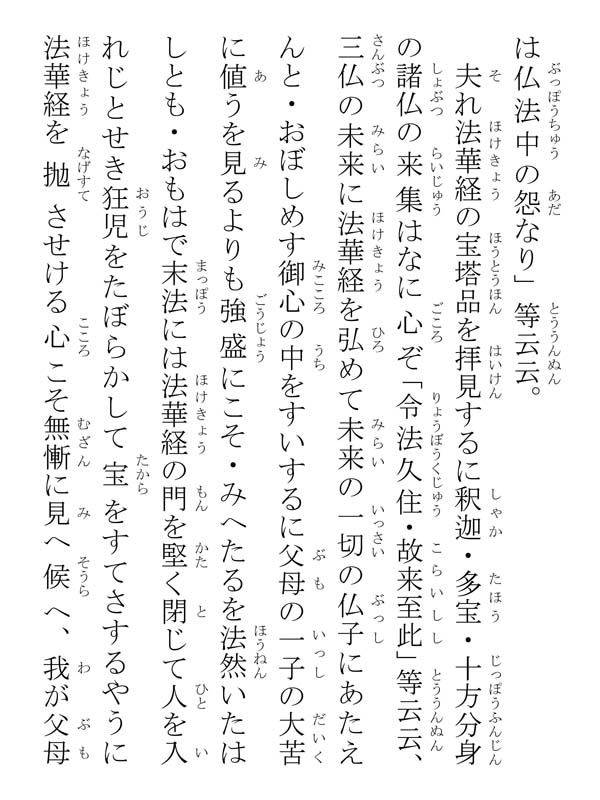 は仏法中の怨なり」等云云。
夫れ法華経の宝塔品を拝見するに釈迦・多宝・十方分身
の諸仏の来集はなに心ぞ「令法久住・故来至此」等云云、
三仏の未来に法華経を弘めて未来の一切の仏子にあたえ
んと・おぼしめす御心の中をすいするに父母の一子の大苦
に値うを見るよりも強盛にこそ・みへたるを法然いたは
しとも・おもはで末法には法華経の門を堅く閉じて人を入
れじとせき狂児をたぼらかして宝をすてさするやうに
法華経を抛させける心こそ無慚に見へ候へ、我が父母